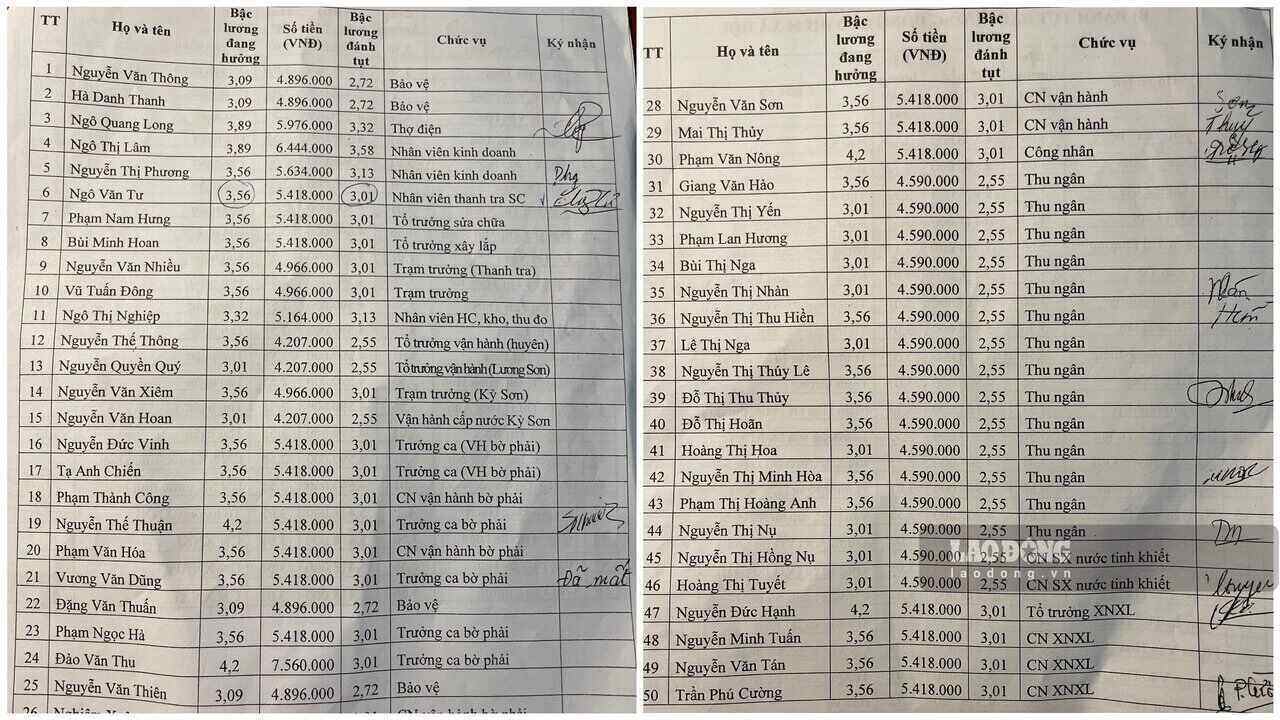 TT Họ và tên Bậc lương đang hưởng Số tiền (VNĐ) Bậc lương đánh tụt Chức vụ Ký nhận
1 Nguyễn Văn Thông 3,09 4.896.000 2,72 Bảo vệ
2 Hà Danh Thanh 3,09 4.896.000 2,72 Bảo vệ
3 Ngô Quang Long 3,89 5.976.000 3,32 Thợ điện
4 Ngô Thị Lâm 3,89 6.444.000 3,58 Nhân viên kinh doanh
5 Nguyễn Thị Phương 3,56 5.634.000 3,13 Nhân viên kinh doanh
6 Ngô Văn Tư 3,56 5.418.000 3,01 Nhân viên thanh tra SC
7 Phạm Nam Hưng 3,56 5.418.000 3,01 Tổ trưởng sửa chữa
8 Bùi Minh Hoan 3,56 5.418.000 3,01 Tổ trưởng xây lắp
9 Nguyễn Văn Nhiều 3,56 4.966.000 3,01 Trạm trưởng (Thanh tra)
10 Vũ Tuấn Đông 3,56 4.966.000 3,01 Trạm trưởng
11 Ngô Thị Nghiệp 3,32 5.164.000 3,13 Nhân viên HC, kho, thu do
12 Nguyễn Thế Thông 3,56 4.207.000 2,55 Tổ trưởng vận hành (huyện)
13 Nguyễn Quyền Quý 3,01 4.207.000 2,55 Tổ trưởng vận hành (Lương Sơn)
14 Nguyễn Văn Xiêm 3,56 4.966.000 3,01 Trạm trưởng (Kỳ Sơn)
15 Nguyễn Văn Hoan 3,01 4.207.000 2,55 Vận hành cấp nước Kỳ Sơn
16 Nguyễn Đức Vinh 3,56 5.418.000 3,01 Trưởng ca (VH bờ phải)
17 Tạ Anh Chiến 3,56 5.418.000 3,01 Trưởng ca (VH bờ phải)
18 Phạm Thành Công 3,56 5.418.000 3,01 CN vận hành bờ phải
19 Nguyễn Thế Thuận 4,2 5.418.000 3,01 Trưởng ca bờ phải
20 Phạm Văn Hóa 3,56 5.418.000 3,01 CN vận hành bờ phải
21 Vương Văn Dũng 3,56 5.418.000 3,01 Trưởng ca bờ phải Đã mất
22 Đặng Văn Thuấn 3,09 4.896.000 2,72 Bảo vệ
23 Phạm Ngọc Hà 3,56 5.418.000 3,01 Trưởng ca bờ phải
24 Đào Văn Thu 4,2 7.560.000 3,01 Trưởng ca bờ phải
25 Nguyễn Văn Thiên 3,09 4.896.000 2,72 Bảo vệ
26
TT Họ và tên Bậc lương đang hưởng Số tiền (VNĐ) Bậc lương đánh tụt Chức vụ Ký nhận
28 Nguyễn Văn Sơn 3,56 5.418.000 3,01 CN vận hành Sơn
29 Mai Thị Thủy 3,56 5.418.000 3,01 CN vận hành Thuỷ
30 Phạm Văn Nông 4,2 5.418.000 3,01 Công nhân
31 Giang Văn Hảo 3,56 4.590.000 2,55 Thu ngân
32 Nguyễn Thị Yến 3,01 4.590.000 2,55 Thu ngân
33 Phạm Lan Hương 3,01 4.590.000 2,55 Thu ngân
34 Bùi Thị Nga 3,01 4.590.000 2,55 Thu ngân
35 Nguyễn Thị Nhàn 3,01 4.590.000 2,55 Thu ngân Nhàn
36 Nguyễn Thị Thu Hiền 3,56 4.590.000 2,55 Thu ngân Hiền
37 Lê Thị Nga 3,01 4.590.000 2,55 Thu ngân
38 Nguyễn Thị Thúy Lê 3,56 4.590.000 2,55 Thu ngân
39 Đỗ Thị Thu Thủy 3,56 4.590.000 2,55 Thu ngân
40 Đỗ Thị Hoãn 3,56 4.590.000 2,55 Thu ngân
41 Hoàng Thị Hoa 3,01 4.590.000 2,55 Thu ngân
42 Nguyễn Thị Minh Hòa 3,56 4.590.000 2,55 Thu ngân
43 Phạm Thị Hoàng Anh 3,56 4.590.000 2,55 Thu ngân
44 Nguyễn Thị Nụ 3,01 4.590.000 2,55 Thu ngân
45 Nguyễn Thị Hồng Nụ 3,01 4.590.000 2,55 CN SX nước tinh khiết
46 Hoàng Thị Tuyết 3,01 4.590.000 2,55 CN SX nước tinh khiết
47 Nguyễn Đức Hạnh 4,2 5.418.000 3,01 Tổ trưởng XNXL
48 Nguyễn Minh Tuấn 3,56 5.418.000 3,01 CN XNXL
49 Nguyễn Văn Tán 3,56 5.418.000 3,01 CN XNXL
50 Trần Phú Cường 3,56 5.418.000 3,01 CN XNXL
LAO ĐỘNG
laodong.vn